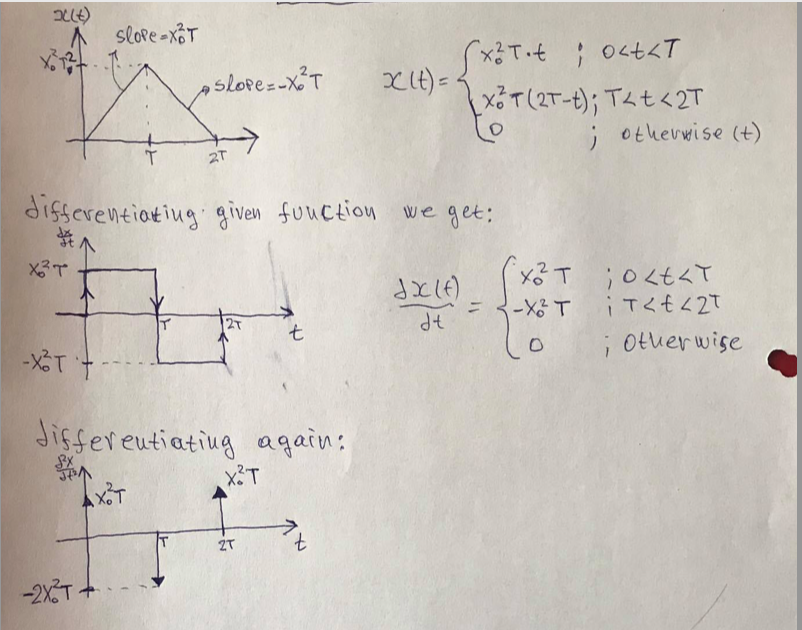 x(t)
slope=x₀²T
x₀²T²
slope=-x₀²T
T
2T
x(t)= { x₀²T·t ; 0<t<T
x₀²T(2T-t); T<t<2T
0 ; otherwise (t)
differentiating given function we get:
dx/dt
x₀²T
T
2T
t
-x₀²T
dx(t)/dt = { x₀²T ; 0<t<T
-x₀²T ; T<t<2T
0 ; otherwise
differentiating again:
d²x/dt²
x₀²T
x₀²T
T
2T
t
-2x₀²T